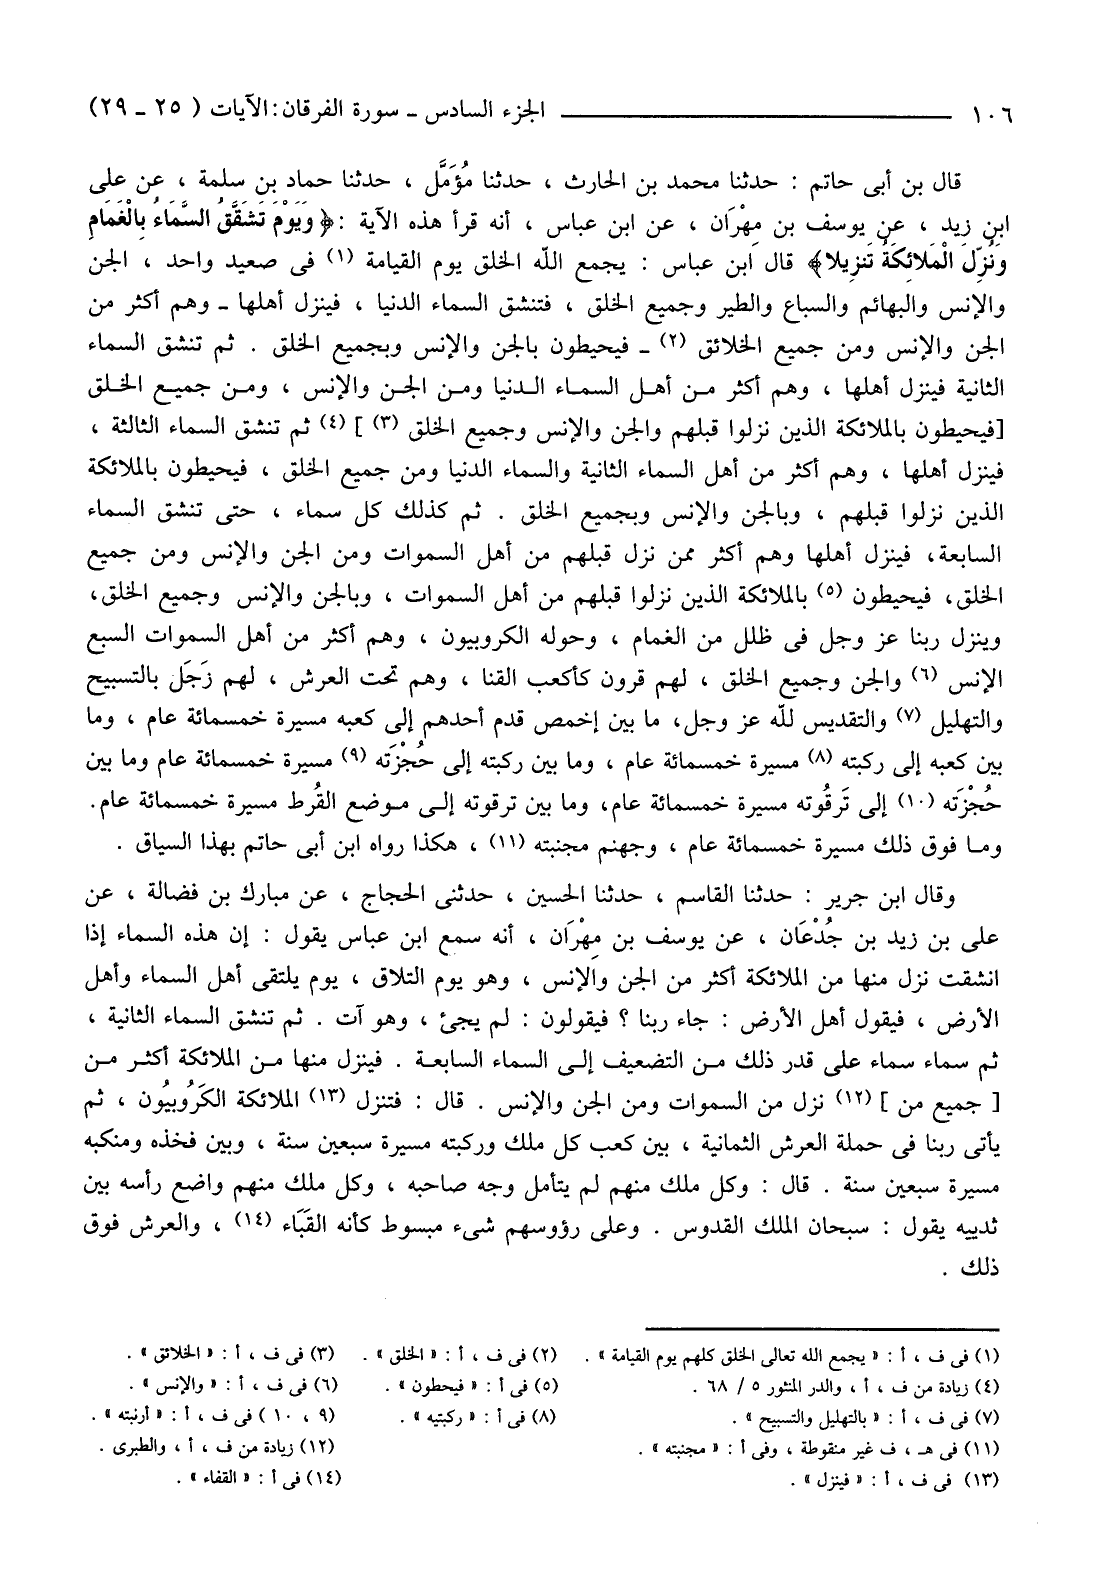 ١٠٦ ــــــــــ الجزء السادس ـ سورة الفرقان: الآيات ( ٢٥ ـ ٢٩)
قال بن أبى حاتم : حدثنا محمد بن الحارث ، حدثنا مُؤَمَّل ، حدثنا حماد بن سلمة ، عن على
ابن زيد ، عن يوسف بن مِهْرَان ، عن ابن عباس ، أنه قرأ هذه الآية :﴿ وَيَوْمَ تَشَقَّقُ السَّمَاءُ بِالْغَمَامِ
وَنُزِّلَ الْمَلائِكَةُ تَنزِيلا﴾ قال ابن عباس : يجمع اللّه الخلق يوم القيامة (١) فى صعيد واحد ، الجن
والإنس والبهائم والسباع والطير وجميع الخلق ، فتنشق السماء الدنيا ، فينزل أهلها ـ وهم أكثر من
الجن والإنس ومن جميع الخلائق (٢) ـ فيحيطون بالجن والإنس وبجميع الخلق . ثم تنشق السماء
الثانية فينزل أهلها ، وهم أكثر مـن أهـل السمـاء الـدنيا ومـن الجـن والإنس ، ومـن جميـع الخلـق
[فيحيطون بالملائكة الذين نزلوا قبلهم والجن والإنس وجميع الخلق (٣) ] (٤) ثم تنشق السماء الثالثة ،
فينزل أهلها ، وهم أكثر من أهل السماء الثانية والسماء الدنيا ومن جميع الخلق ، فيحيطون بالملائكة
الذين نزلوا قبلهم ، وبالجن والإنس وبجميع الخلق . ثم كذلك كل سماء ، حتى تنشق السماء
السابعة، فينزل أهلها وهم أكثر ممن نزل قبلهم من أهل السموات ومن الجن والإنس ومن جميع
الخلق، فيحيطون (٥) بالملائكة الذين نزلوا قبلهم من أهل السموات ، وبالجن والإنس وجميع الخلق،
وينزل ربنا عز وجل فى ظلل من الغمام ، وحوله الكروبيون ، وهم أكثر من أهل السموات السبع
الإنس (٦) والجن وجميع الخلق ، لهم قرون كأكعب القنا ، وهم تحت العرش ، لهم زَجَل بالتسبيح
والتهليل (٧) والتقديس للّه عز وجل، ما بين إخمص قدم أحدهم إلى كعبه مسيرة خمسمائة عام ، وما
بين كعبه إلى ركبته (٨) مسيرة خمسمائة عام ، وما بين ركبته إلى حُجْزَته (٩) مسيرة خمسمائة عام وما بين
حُجْزَته (١٠) إلى تَرقُوته مسيرة خمسمائة عام، وما بين ترقوته إلـى مـوضع القُرط مسيرة خمسمائة عام.
ومـا فوق ذلك مسيرة خمسمائة عام ، وجهنم مجنبته (١١) ، هكذا رواه ابن أبى حاتم بهذا السياق .
وقال ابن جرير : حدثنا القاسم ، حدثنا الحسين ، حدثنى الحجاج ، عن مبارك بن فضالة ، عن
على بن زيد بن جُدْعَان ، عن يوسف بن مِهْرَان ، أنه سمع ابن عباس يقول : إن هذه السماء إذا
انشقت نزل منها من الملائكة أكثر من الجن والإنس ، وهو يوم التلاق ، يوم يلتقى أهل السماء وأهل
الأرض ، فيقول أهل الأرض : جاء ربنا ؟ فيقولون : لم يجئ ، وهو آت . ثم تنشق السماء الثانية ،
ثم سماء سماء على قدر ذلك مـن التضعيف إلـى السماء السابعـة . فينزل منها مـن الملائكة أكثـر مـن
[ جميع من ] (١٢) نزل من السموات ومن الجن والإنس . قال : فتنزل (١٣) الملائكة الكَرُوبِيُون ، ثم
يأتى ربنا فى حملة العرش الثمانية ، بين كعب كل ملك وركبته مسيرة سبعين سنة ، وبين فخذه ومنكبه
مسيرة سبعين سنة . قال : وكل ملك منهم لم يتأمل وجه صاحبه ، وكل ملك منهم واضع رأسه بين
ثدييه يقول : سبحان الملك القدوس . وعلى رؤوسهم شىء مبسوط كأنه القَبَاء (١٤) ، والعرش فوق
ذلك .
(١) فى ف ، أ : « يجمع الله تعالى الخلق كلهم يوم القيامة » . (٢) فى ف ، أ : « الخلق » . (٣) فى ف ، أ : « الخلائق » .
(٤) زيادة من ف ، أ ، والدر المنثور ٥ / ٦٨ . (٥) فى أ : « فيحطون » . (٦) فى ف ، أ : « والإنس » .
(٧) فى ف ، أ : « بالتهليل والتسبيح » . (٨) فى أ : « ركبتيه » . (٩ ، ١٠ ) فى ف ، أ : « أرنبته » .
(١١) فى هـ ، ف غير منقوطة ، وفى أ : « مجنبته » . (١٢) زيادة من ف ، أ ، والطبرى .
(١٣) فى ف ، أ : « فينزل » . (١٤) فى أ : « القفاء » .